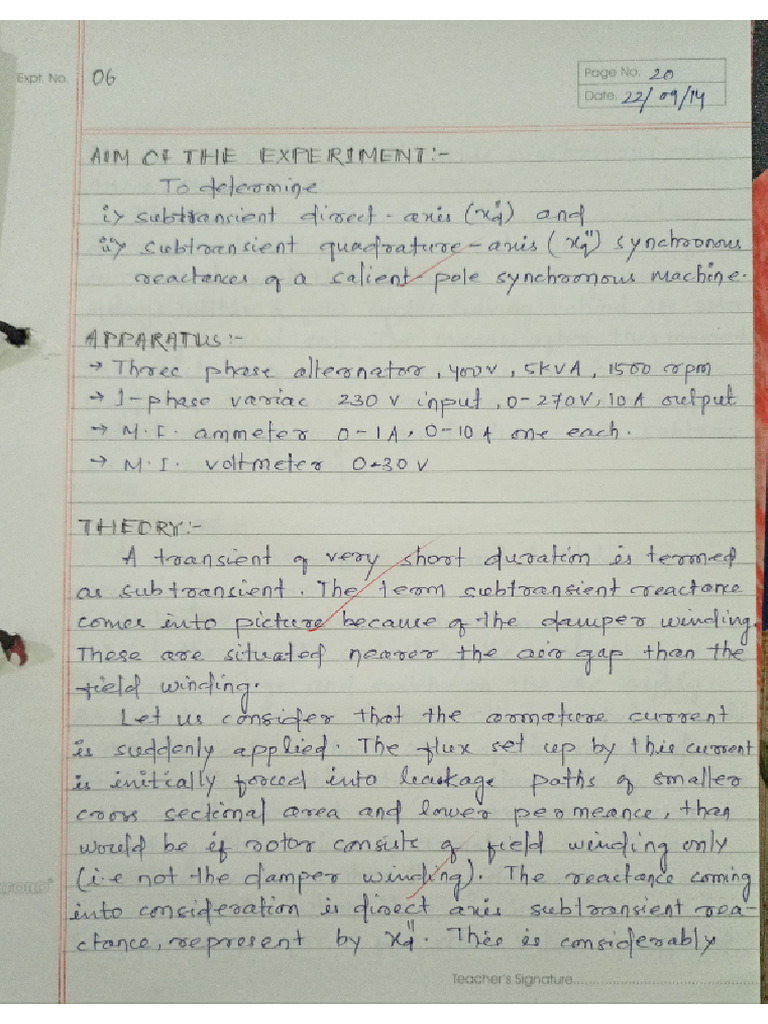 Expt. No. 06
Page No. 20
Date. 22/09/14
AIM OF THE EXPERIMENT:-
To determine
i) subtransient direct-axis (xd") and
ii) subtransient quadrature-axis (xq") synchronous
reactances of a salient pole synchronous machine.
APPARATUS:-
→ Three phase alternator, 400V, 5KVA, 1500 rpm
→ 1-phase variac 230 V input, 0-270V, 10 A output
→ M.I. ammeter 0-1A, 0-10A one each.
→ M.I. voltmeter 0-30 V
THEORY:-
A transient of very short duration is termed
as subtransient. The term subtransient reactance
comes into picture because of the damper winding.
These are situated nearer the air gap than the
field winding.
Let us consider that the armature current
is suddenly applied. The flux set up by this current
is initially forced into leakage paths of smaller
cross sectional area and lower permeance, than
would be if rotor consists of field winding only
(i.e not the damper winding). The reactance coming
into consideration is direct axis subtransient rea-
ctance, represent by xd". This is considerably
Teacher's Signature